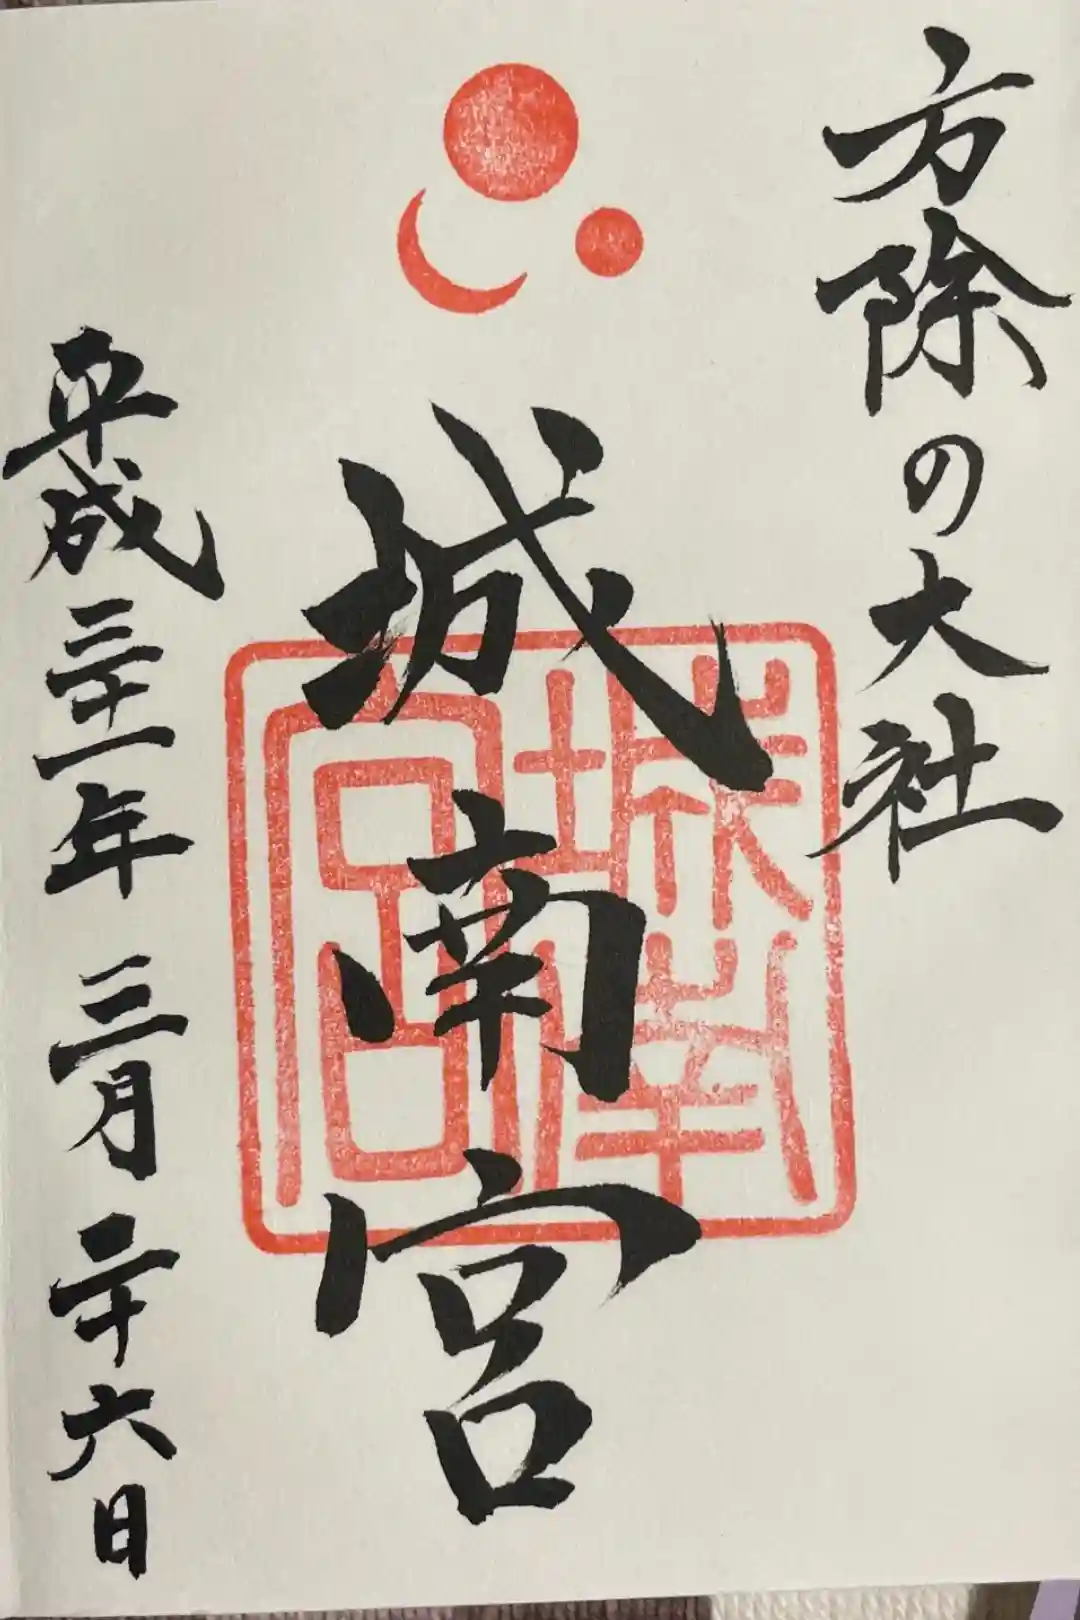 方除の大社
城南宮
平成三十一年三月二十六日
城南宮